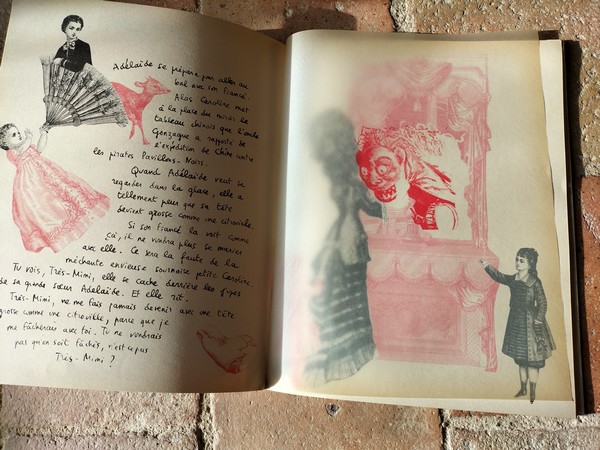 Adélaïde se prépare pour aller au
bal avec son fiancé.
Alors Caroline met
à la place du miroir le
tableau chinois que l'oncle
Gonzague a rapporté de
l'expédition de Chine contre
les pirates Pavillons-Noirs.
Quand Adélaïde veut se
regarder dans la glace, elle a
tellement peur que sa tête
devient grosse comme une citrouille.
Si son fiancé la voit comme
ça, il ne voudra plus se marier
avec elle. Ce sera la faute de la
méchante envieuse sournoise petite Caroline.
Tu vois, Très-Mimi, elle se cache derrière les jupes
de sa grande sœur Adélaïde. Et elle rit.
Très-Mimi, ne me fais jamais devenir avec une tête
grosse comme une citrouille, parce que je
me fâcherais avec toi. Tu ne voudrais
pas qu'on soit fâchés, n'est-ce pas
Très-Mimi ?